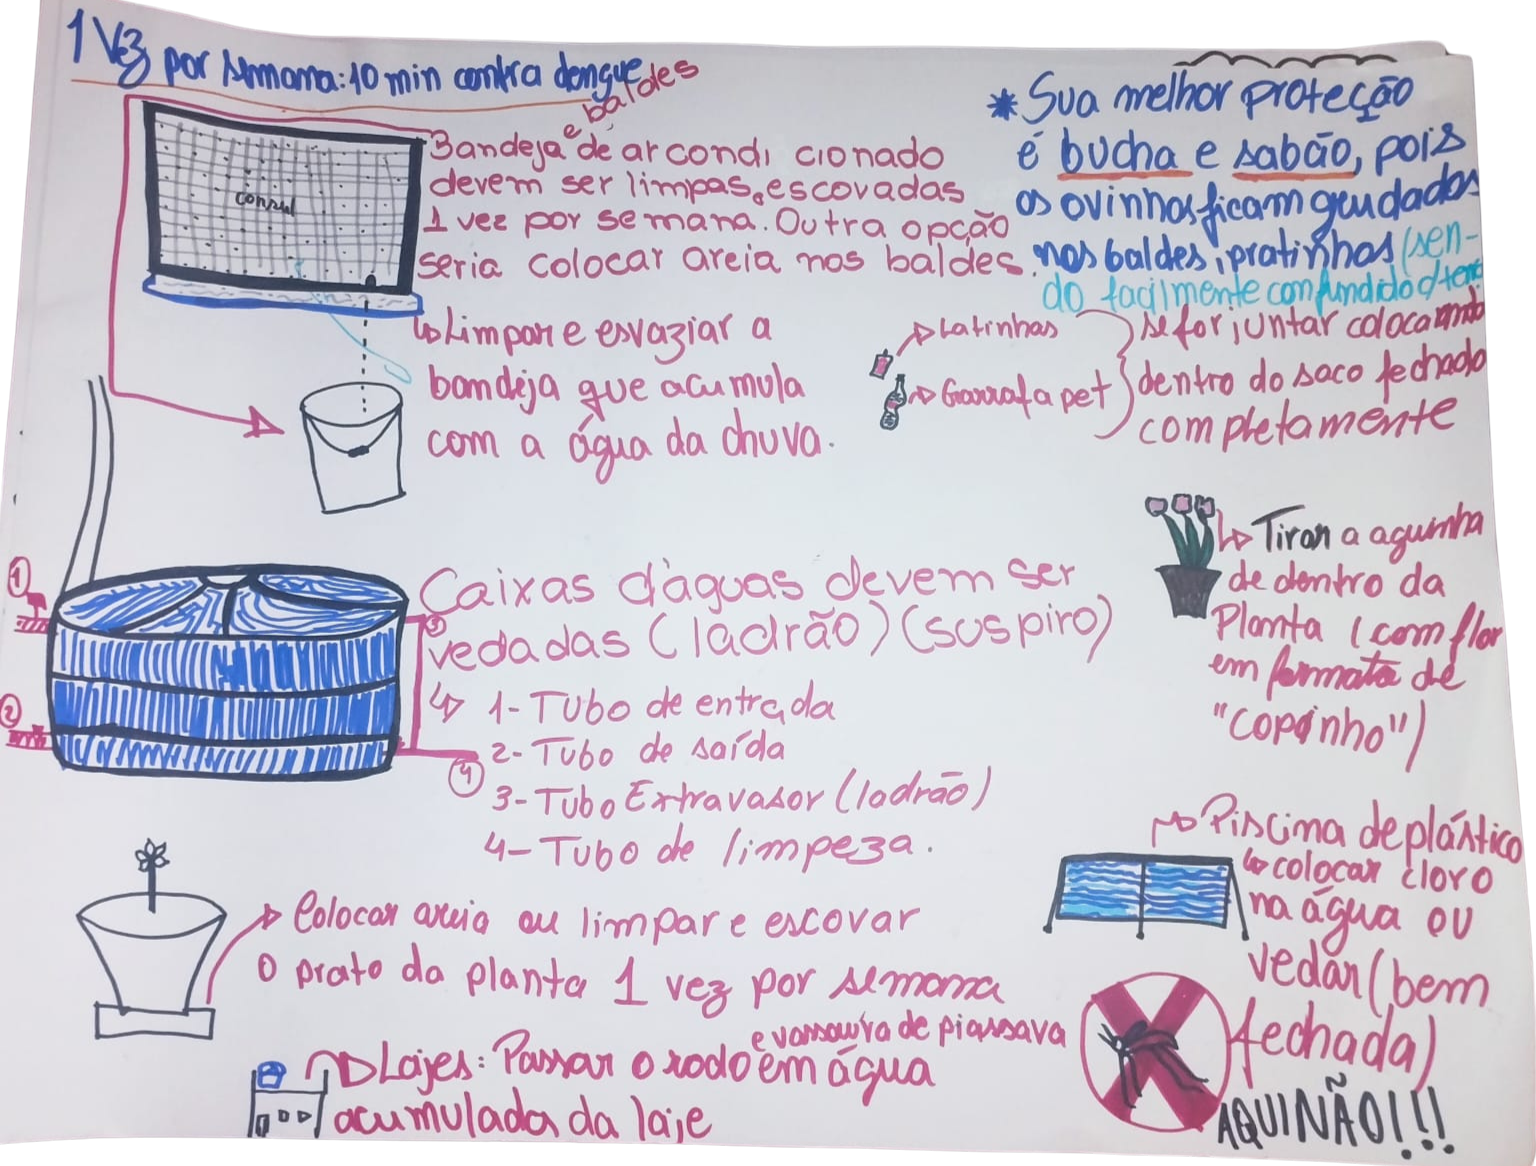 1 Vez por semana: 10 min contra dengue
e baldes
Bandeja de ar condicionado
devem ser limpas e escovadas
1 vez por semana. Outra opção
seria colocar areia nos baldes.
consul
↳ Limpar e esvaziar a
bandeja que acumula
com a água da chuva.
* Sua melhor proteção
é bucha e sabão, pois
os ovinhos ficam grudados
nos baldes, pratinhos (sen-
do facilmente confundido c/terra
Latinhas
Garrafa pet
se for juntar colocando
dentro do saco fechado
completamente
Tirar a aguinha
de dentro da
Planta (com flor
em formato de
"copinho")
1
2
3
4
Caixas d'águas devem ser
vedadas (ladrão) (suspiro)
↳ 1- Tubo de entrada
2- Tubo de saída
3- Tubo Extravasor (ladrão)
4- Tubo de limpeza.
Piscina de plástico
↳ colocar cloro
na água ou
vedar (bem
fechada)
Colocar areia ou limpar e escovar
o prato da planta 1 vez por semana
e vassoura de piassava
Lajes: Passar o rodo em água
acumulada da laje
AQUI NÃO!!!